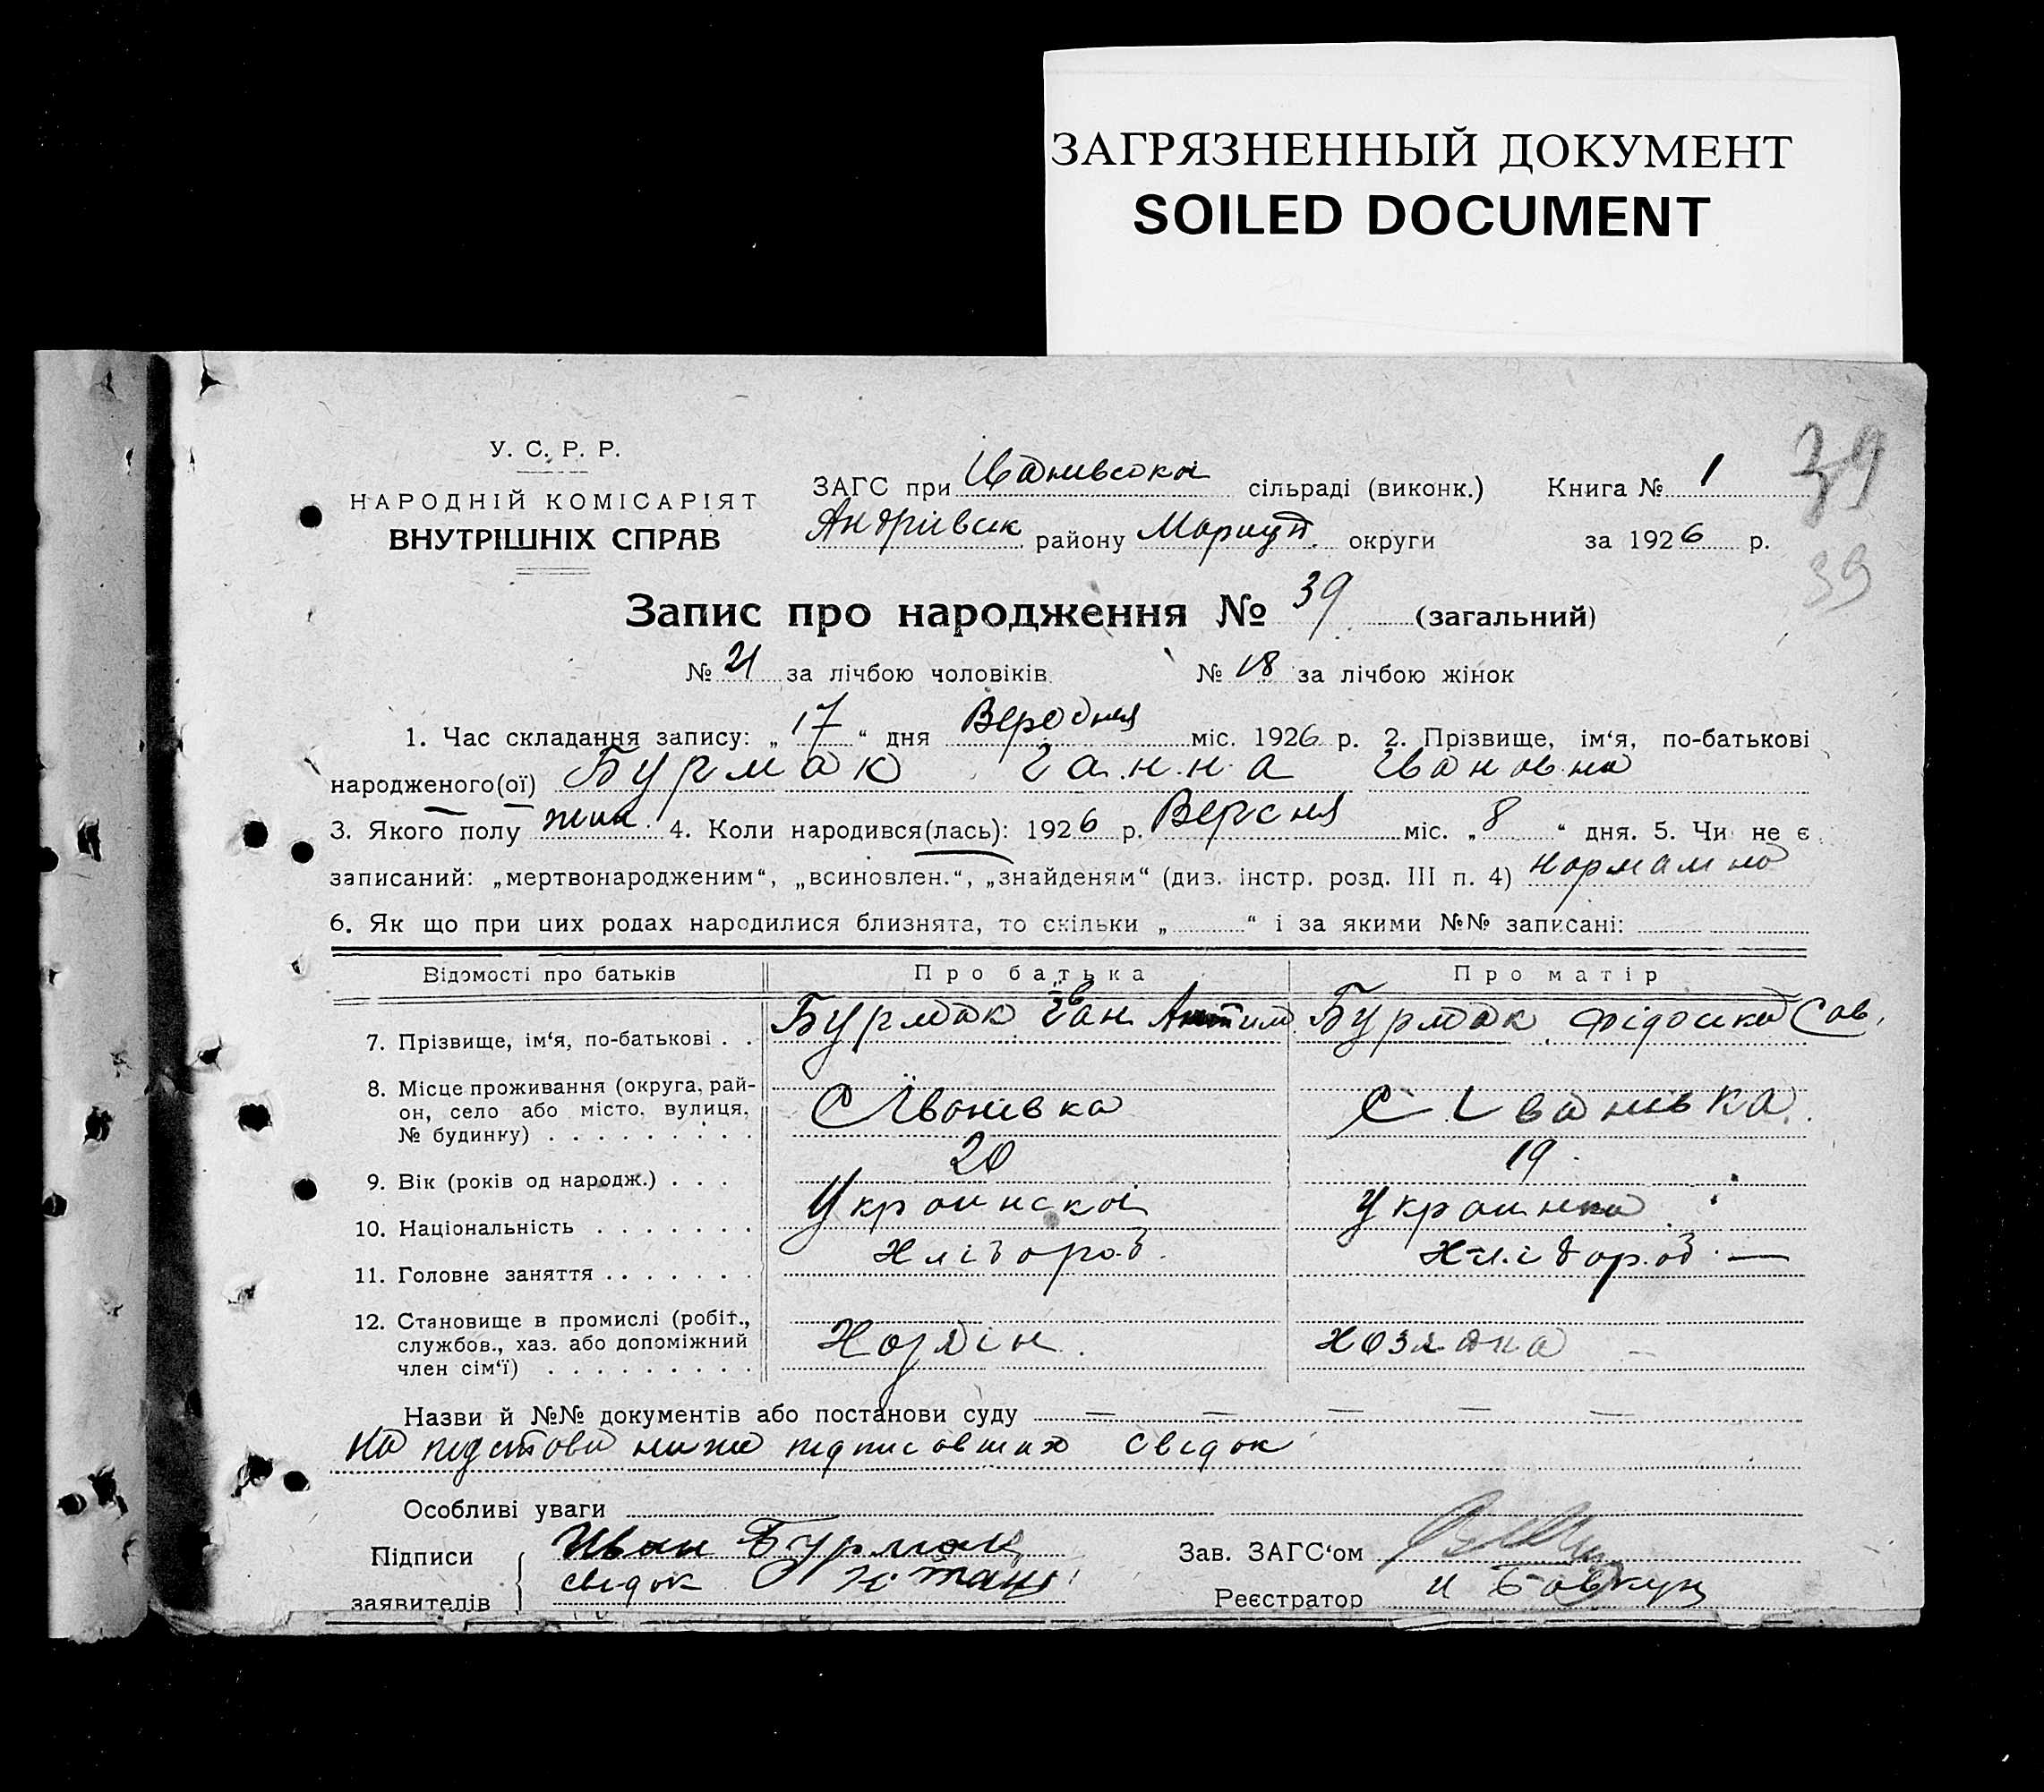 ЗАГРЯЗНЕННЫЙ ДОКУМЕНТ
SOILED DOCUMENT
У. С. Р. Р.
НАРОДНІЙ КОМІСАРІЯТ
ВНУТРІШНІХ СПРАВ
39
39
ЗАГС при Іванивськой сільраді (виконк.) Книга № 1
Андріівськ району Мариуп. округи за 1926 р.
Запис про народження № 39 (загальний)
№ 21 за лічбою чоловіків № 18 за лічбою жінок
1. Час складання запису: „ 17 “ дня міс. 1926 р. 2. Прізвище, ім‘я, по-батькові
народженого(ої) Бурмак Ганна Івановна
3. Якого полу жин. 4. Коли народився(лась): 1926 р. Версня міс. „ 8 “ дня. 5. Чи не є
записаний: „мертвонародженим“, „всиновлен.“, „знайденям“ (диз. інстр. розд. III п. 4) нормално
6. Як що при цих родах народилися близнята, то скільки „ “ і за якими №№ записані:
Відомості про батьків Про батька Про матір
7. Прізвище, ім‘я, по-батькові . . Бурмак Іван Бурмак Фідоска Сав.
8. Місце проживання (округа, рай-
он, село або місто, вулиця,
№ будинку) . . . . . . . . . С Івонівка С Іванивка
9. Вік (років од народж.) . . . 20 19
10. Національність . . . . . . . Украинской Украинка
11. Головне заняття . . . . . . . Хлібороб. Хлібороб. —
12. Становище в промислі (робіт.,
службов., хаз. або допоміжний
член сім‘ї) . . . . . . . . . Хозяін. хозяйка —
Назви й №№ документів або постанови суду — — — — —
На підстави ниже підписавших свідок
Особливі уваги
Підписи Иван Бурмак Зав. ЗАГС‘ом
заявителів свідок Реєстратор И Бовкун